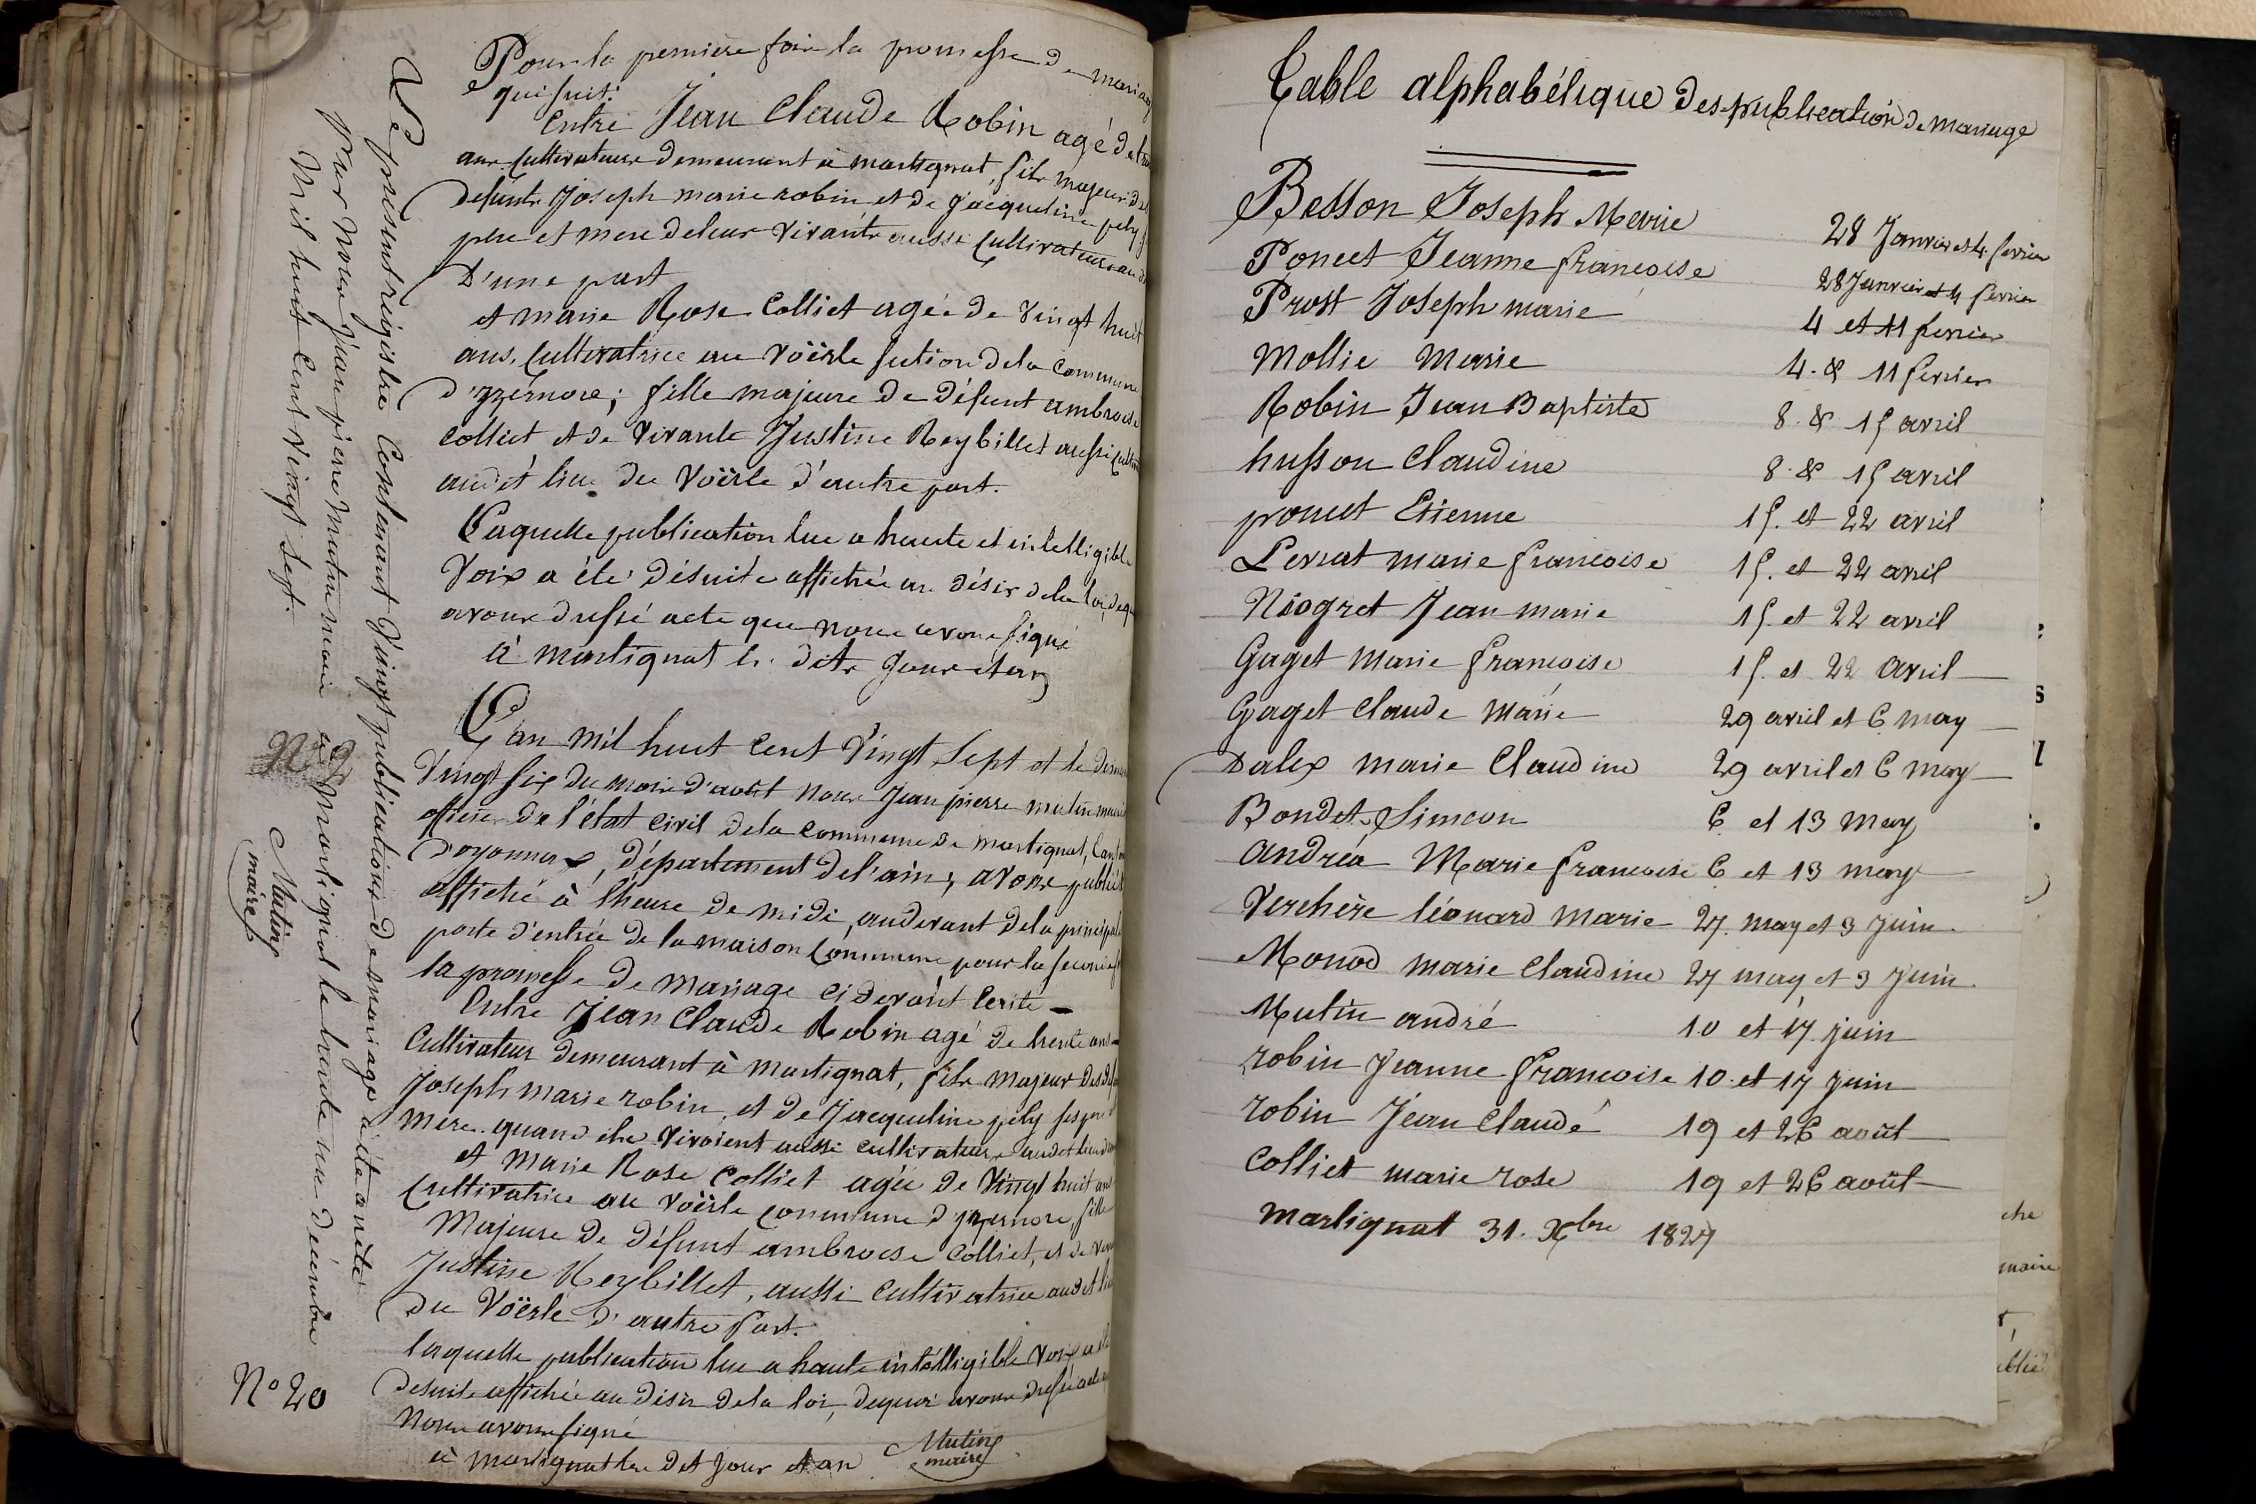 Pour la premiere fois la promesse de mariage
qui suit:
Entre Jean Claude Robin agé de
ans Cultivateur demeurant à martignat, fils majeur de
defunts Joseph marie robin et de Jacqueline pely
pere et mere de leur vivants aussi Cultivateurs au
D'une part
et marie Rose Colliet agée de vingt huit
ans, Cultivatrice au Voërle section de la Commune
d'yzernore; fille majeure de défunt ambroise
Colliet et de vivante Justine Reybillet aussi
audit lieu du Voërle d'autre part.
Laquelle publication lue a haute et intelligible
Voix a été désuite affichée au désir de la loi, de
avons dressé acte que nous avons signé
à martignat les dits jour et an
N°
L'an mil huit cent vingt Sept et le
vingt six du mois d'août nous Jean pierre mutin maire
officier de l'état civil de la commune de martignat,
d'oyonnax, département de l'ain, avons publié
affiché à l'heure de midi, audevant de la principale
porte d'entrée de la maison Commune pour la
la promesse de mariage ci devant écrite
Entre Jean Claude Robin agé de trente ans
Cultivateur demeurant à martignat, fils majeur des
Joseph marie robin, et de Jacqueline pely
mère quand ils vivoient aussi cultivateurs audit lieu
et marie Rose Colliet agée de vingt huit ans
Cultivatrice au Voërle commune d'yzernore, fille
Majeure de défunt ambroise Colliet, et de
Justine Reybillet, aussi cultivatrice audit lieu
du Voërle d'autre part.
laquelle publication lue a haute intelligible voix a
desuite affichée au désir de la loi, dequoi avons dressé acte
Nous avons signé
à martignat les dit jour et an
Mutin
maire
N° 20
Le présent régistre Contenant vingt publications de mariage a été arrêté
par Nous Jean pierre Mutin maire de Martignat le trente un décembre
Mil huit Cent vingt Sept.
Mutin
maire
Table alphabétique des publication de mariage
Besson Joseph Marie 28 Janvier et 4 fevrier
Poncet Jeanne francoise 28 Janvier et 4 fevrier
Prost Joseph marie 4 et 11 fevrier
Mollie Marie 4. & 11 fevrier
Robin Jean Baptiste 8. & 15 avril
husson Claudine 8. & 15 avril
poncet Etienne 15. et 22 avril
Levrat marie francoise 15. et 22 avril
Niogret Jean marie 15 et 22 avril
Gaget Marie francoise 15. et 22 avril
Gaget Claude Marie 29 avril et 6 may
Dalex marie Claudine 29 avril et 6 may
Bondet Simeon 6 et 13 may
andréa Marie francoise 6 et 13 may
Verchère léonard Marie 27. may et 3 juin.
Monod marie Claudine 27 may et 3 juin.
Mutin andré 10 et 17 juin
robin Jeanne francoise 10 et 17 juin
robin Jean Claude 19 et 26 août
Colliet marie rose 19 et 26 août
martignat 31. Xbre 1827